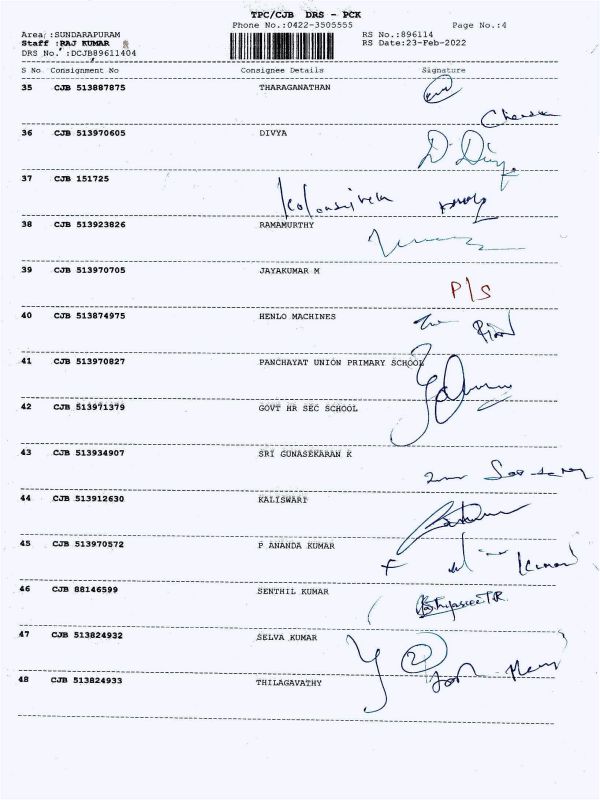 TPC/CJB DRS - PCK
Phone No.:0422-3505555 Page No.:4
Area :SUNDARAPURAM RS No.:896114
Staff :RAJ KUMAR RS Date:23-Feb-2022
DRS No. :DCJB89611404
S No Consignment No Consignee Details Signature
35 CJB 513887875 THARAGANATHAN
36 CJB 513970605 DIVYA
D. Divya
37 CJB 151725
38 CJB 513923826 RAMAMURTHY
39 CJB 513970705 JAYAKUMAR M
P/S
40 CJB 513874975 HENLO MACHINES
41 CJB 513970827 PANCHAYAT UNION PRIMARY SCHOOL
42 CJB 513971379 GOVT HR SEC SCHOOL
43 CJB 513934907 SRI GUNASEKARAN K
44 CJB 513912630 KALISWARI
45 CJB 513970572 P ANANDA KUMAR
46 CJB 88146599 SENTHIL KUMAR
47 CJB 513824932 SELVA KUMAR
48 CJB 513824933 THILAGAVATHY